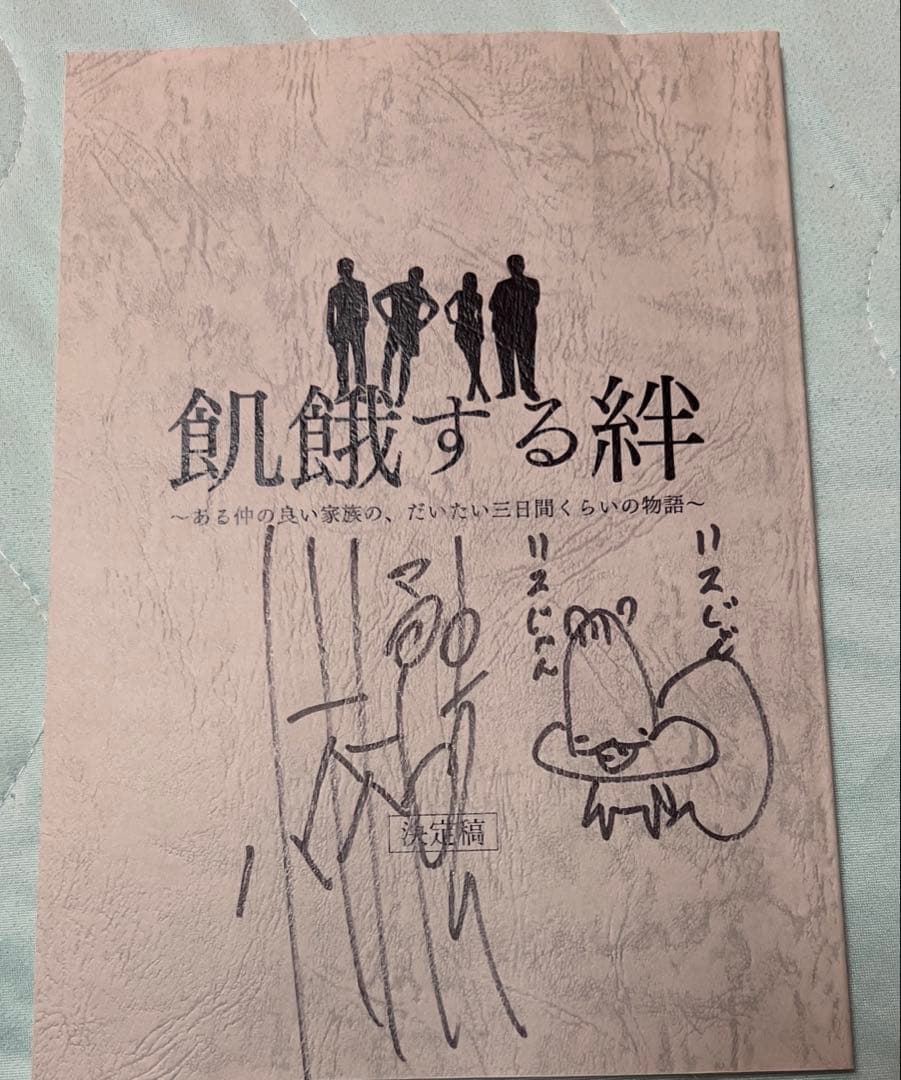 飢餓する絆
～ある仲の良い家族の、だいたい三日間くらいの物語～
リスじゃん
リスじゃん
決定稿